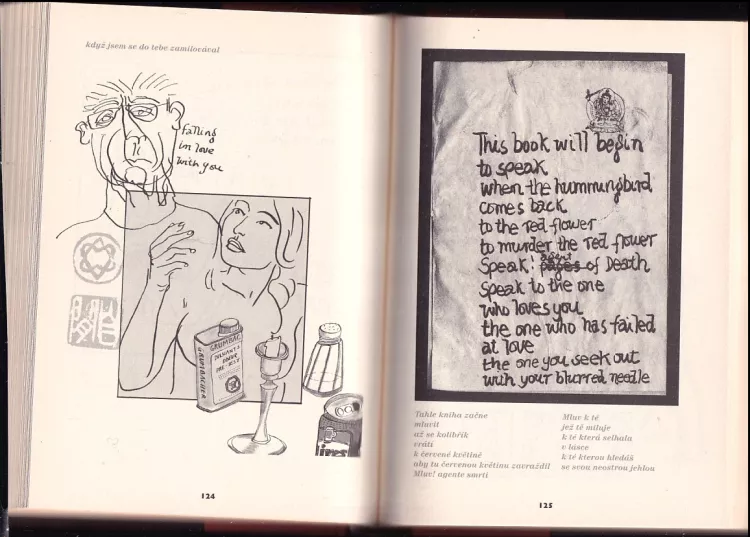 když jsem se do tebe zamilovával
falling
in love
with you
GRUMBACHER
124
This book will begin
to speak
when the hummungbird
comes back
to the red flower
to murder the red flower
Speak! agent pages of Death
Speak to the one
who loves you
the one who has failed
at love
the one you seek out
with your blurred needle
Takle kniha začne
mluvit
až se kolibřík
vrátí
k červené květině
aby tu červenou květinu zavraždil
Mluv! agente smrti
Mluv k té
jež tě miluje
k té která selhala
v lásce
k té kterou hledáš
se svou neostrou jehlou
125